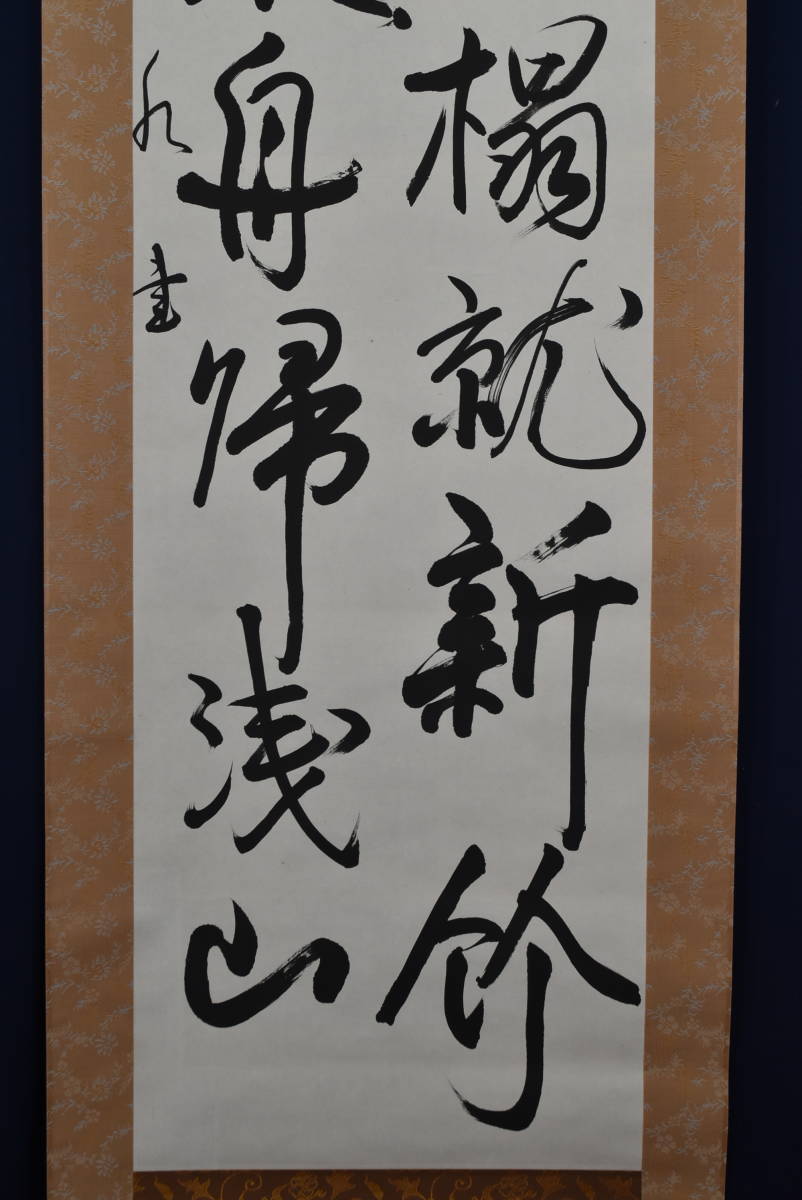 榻就新竹
舟帰浅山
書